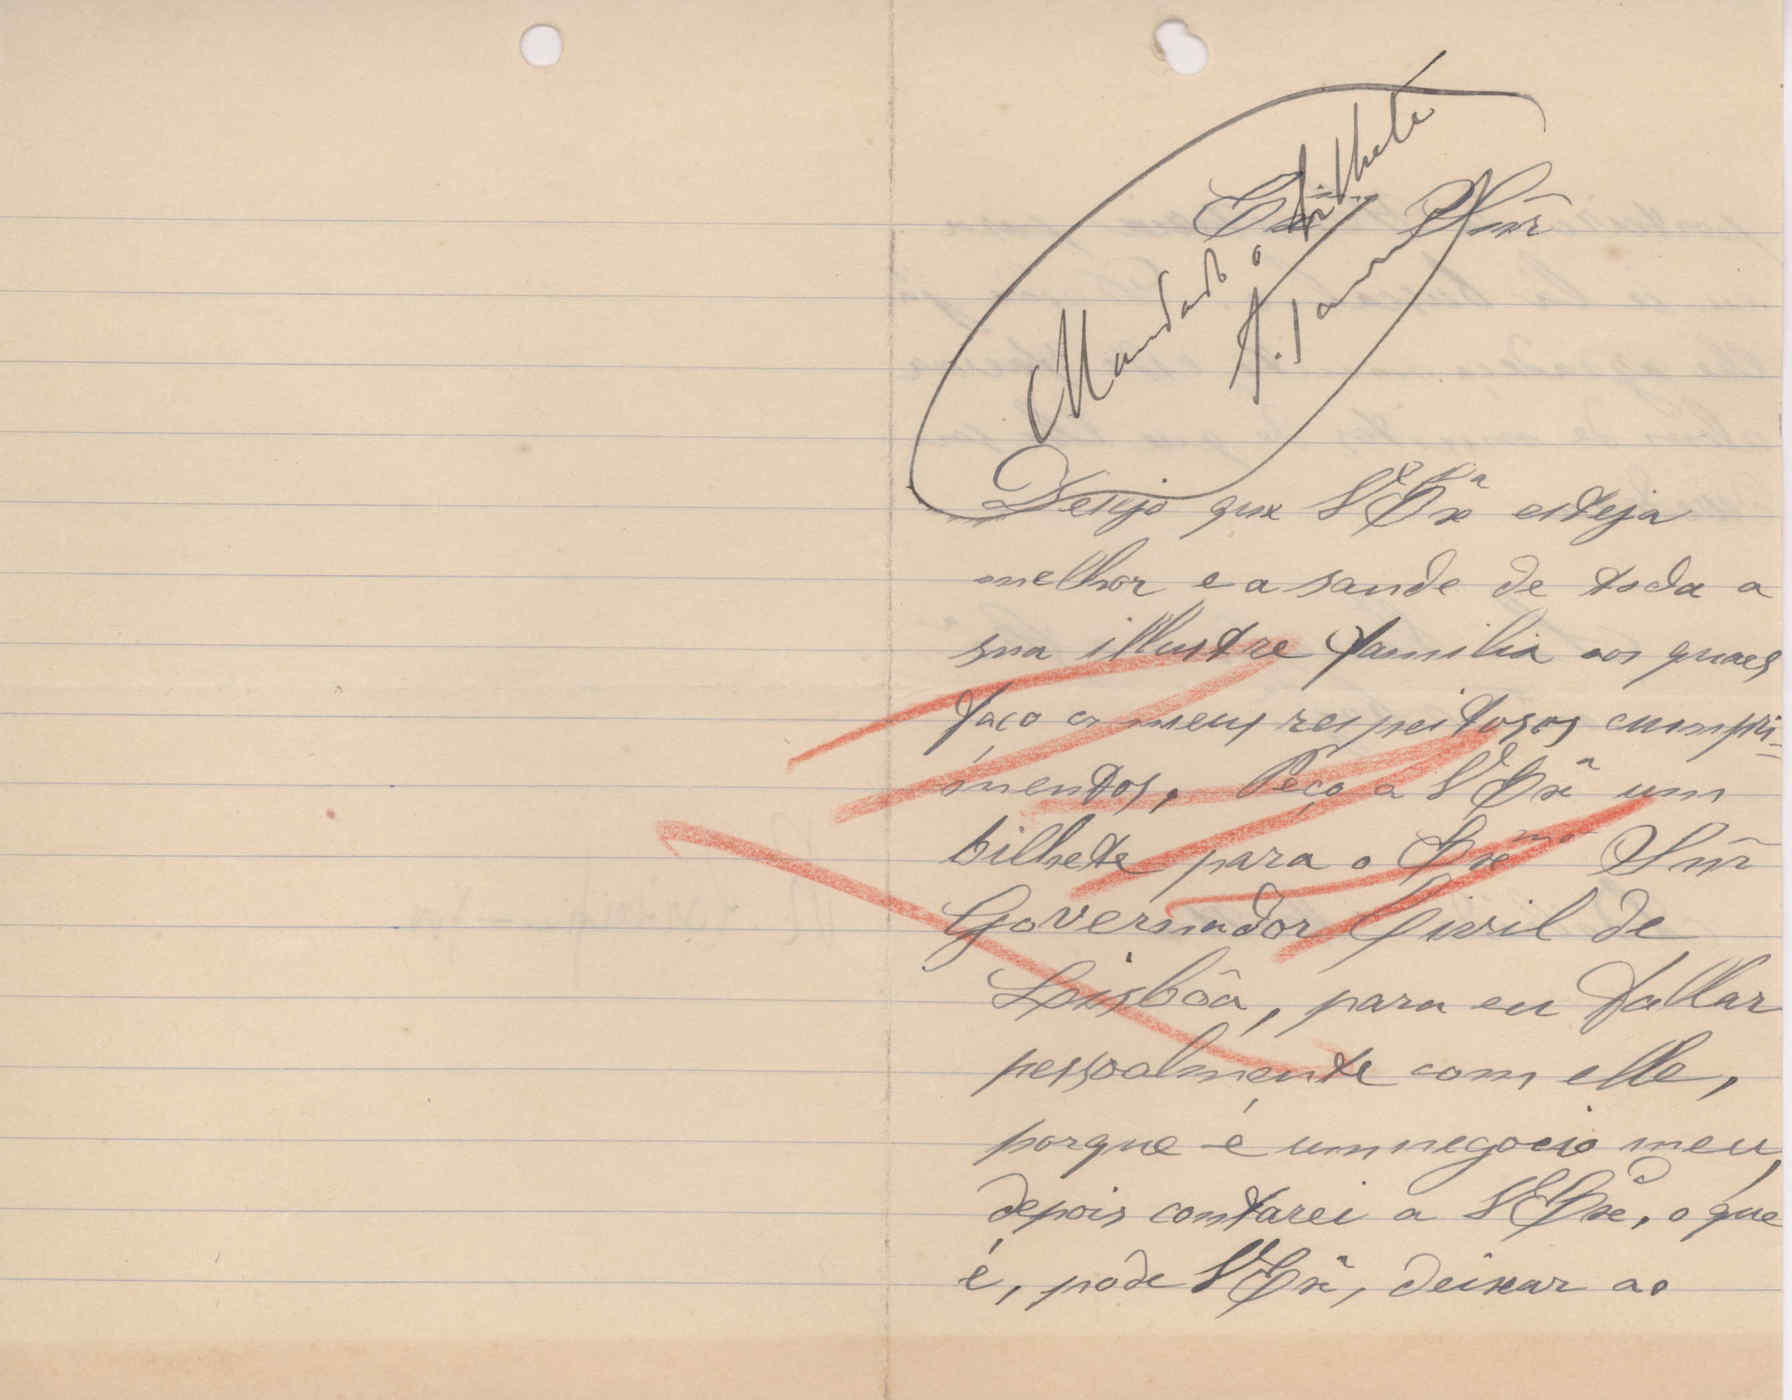 Mandado o bilhete
Exmo Snr
Desejo que V Exª esteja
melhor e a saude de toda a
sua illustre familia aos quaes
faço os meus respeitosos cumpri-
mentos, Peço a V Exª um
bilhete para o Exmo Snr
Governador Civil de
Lisbôa, para eu fallar
pessoalmente com elle,
porque é um negocio meu,
depois contarei a V Exª, o que
é, pode V Exª, deixar ao